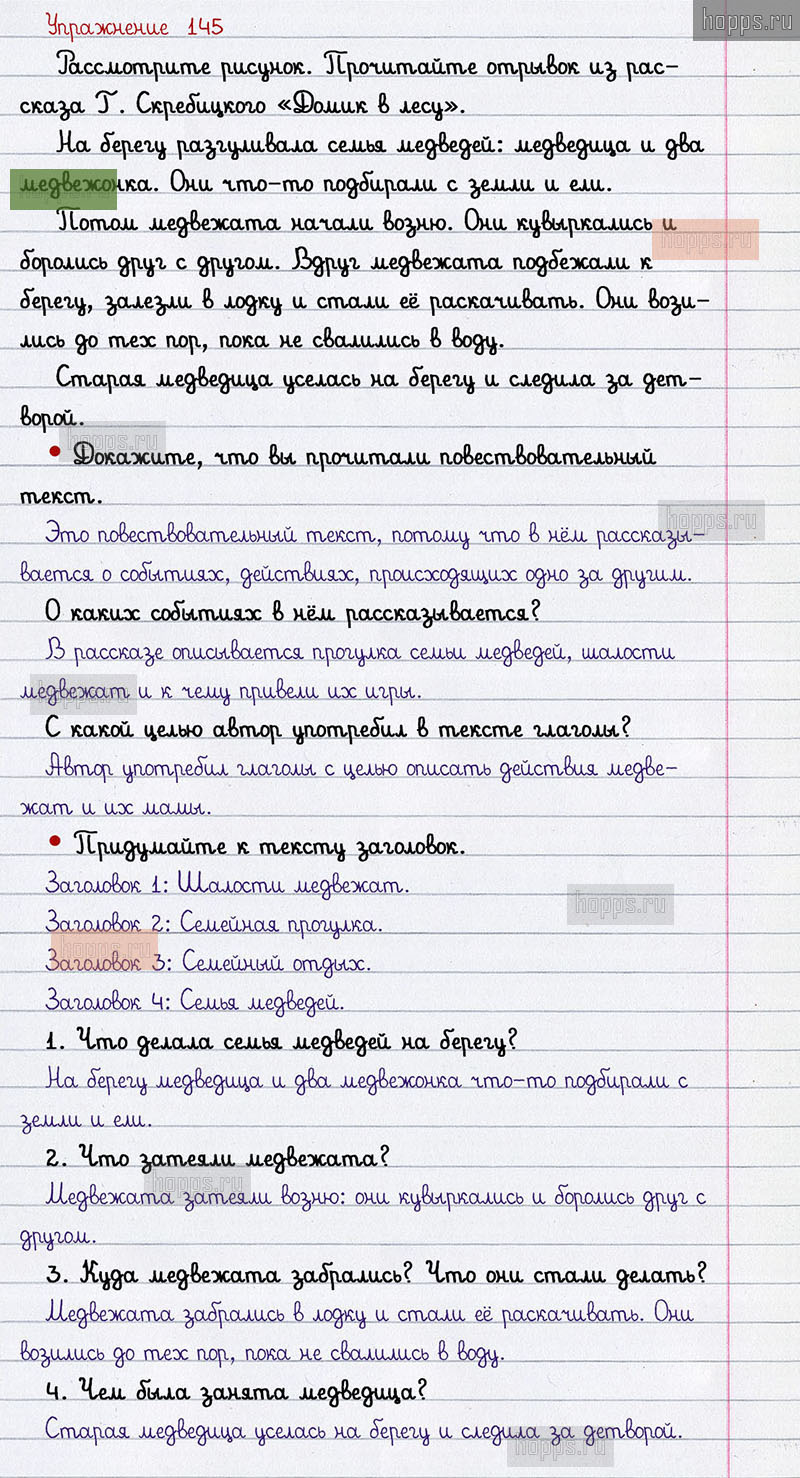 Упражнение 145
hopps.ru
Рассмотрите рисунок. Прочитайте отрывок из рас-
сказа Г. Скребицкого «Домик в лесу».
На берегу разгуливала семья медведей: медведица и два
медвежонка. Они что-то подбирали с земли и ели.
Потом медвежата начали возню. Они кувыркались и
hopps.ru
боролись друг с другом. Вдруг медвежата подбежали к
берегу, залезли в лодку и стали её раскачивать. Они вози-
лись до тех пор, пока не свалились в воду.
Старая медведица уселась на берегу и следила за дет-
ворой.
hopps.ru
• Докажите, что вы прочитали повествовательный
текст.
hopps.ru
Это повествовательный текст, потому что в нём рассказы-
вается о событиях, действиях, происходящих одно за другим.
О каких событиях в нём рассказывается?
В рассказе описывается прогулка семьи медведей, шалости
медвежат и к чему привели их игры.
hopps.ru
С какой целью автор употребил в тексте глаголы?
Автор употребил глаголы с целью описать действия медве-
жат и их мамы.
• Придумайте к тексту заголовок.
Заголовок 1: Шалости медвежат.
hopps.ru
Заголовок 2: Семейная прогулка.
hopps.ru
Заголовок 3: Семейный отдых.
Заголовок 4: Семья медведей.
1. Что делала семья медведей на берегу?
На берегу медведица и два медвежонка что-то подбирали с
земли и ели.
2. Что затеяли медвежата?
hopps.ru
Медвежата затеяли возню: они кувыркались и боролись друг с
другом.
3. Куда медвежата забрались? Что они стали делать?
Медвежата забрались в лодку и стали её раскачивать. Они
возились до тех пор, пока не свалились в воду.
4. Чем была занята медведица?
Старая медведица уселась на берегу и следила за детворой.
hopps.ru